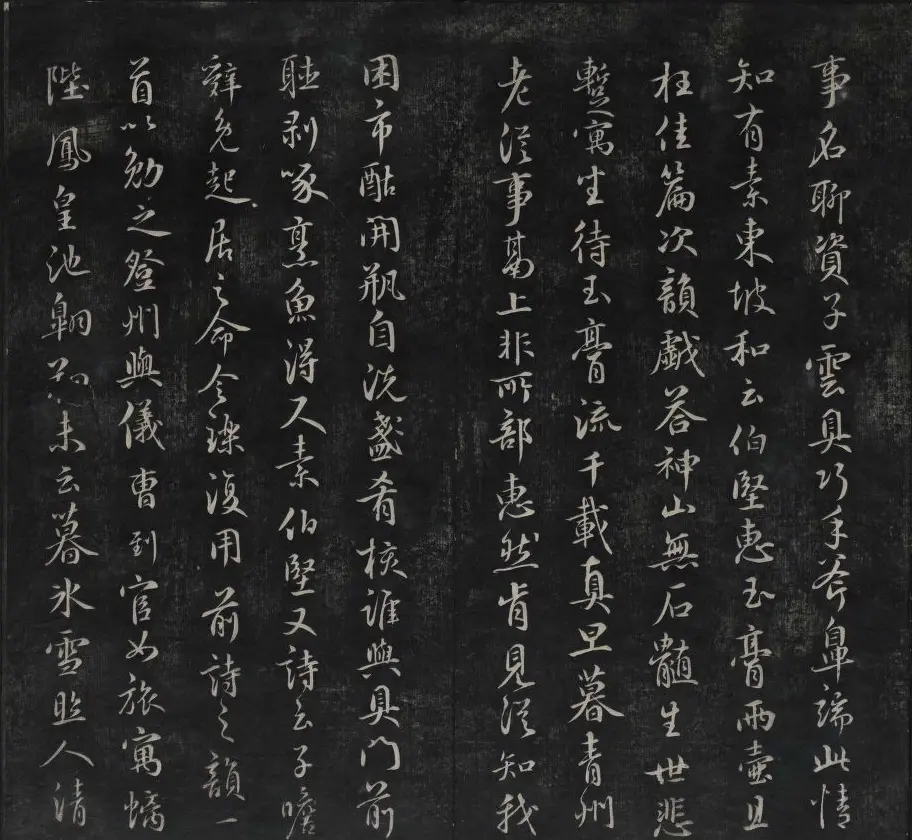 事名聊資子雲具巧手斧鼻端此情
知有素東坡和云伯堅惠玉膏兩壺且
枉佳篇次韻戲荅神山無石髓生世悲
蹔寓坐待玉膏流千載真旦暮青州
老從事鬲上非所部惠然肯見從知我
困市酤開瓶自洗盞肴核誰與具門前
聽剥啄烹魚得尺素伯堅又詩云子嚐
辭免起居之命令瑮復用前詩之韻一
首以勉之登州與儀曹到官如旅寓蠣
陛鳳皇池翱翔未云暮氷雪照人清